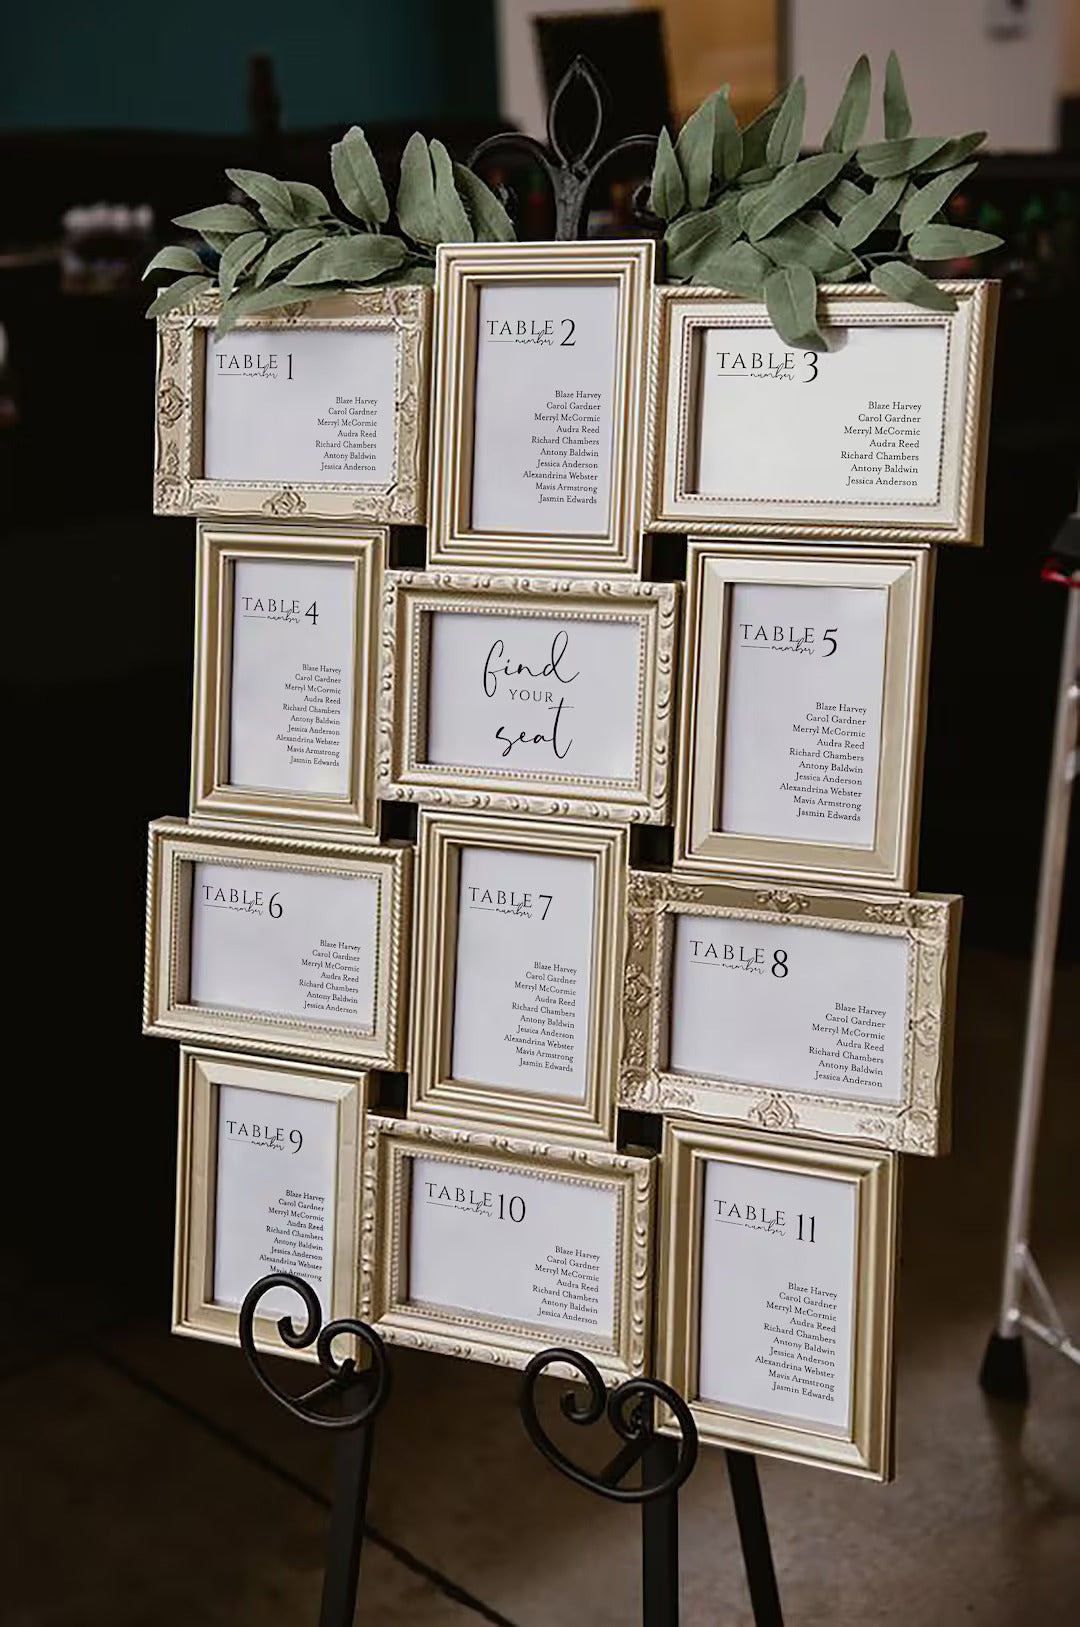 TABLE 1
number
Blaze Harvey
Carol Gardner
Merryl McCormic
Audra Reed
Richard Chambers
Antony Baldwin
Jessica Anderson
TABLE 2
number
Blaze Harvey
Carol Gardner
Merryl McCormic
Audra Reed
Richard Chambers
Antony Baldwin
Jessica Anderson
Alexandrina Webster
Mavis Armstrong
Jasmin Edwards
TABLE 3
number
Blaze Harvey
Carol Gardner
Merryl McCormic
Audra Reed
Richard Chambers
Antony Baldwin
Jessica Anderson
TABLE 4
number
Blaze Harvey
Carol Gardner
Merryl McCormic
Audra Reed
Richard Chambers
Antony Baldwin
Jessica Anderson
Alexandrina Webster
Mavis Armstrong
Jasmin Edwards
find
YOUR
seat
TABLE 5
number
Blaze Harvey
Carol Gardner
Merryl McCormic
Audra Reed
Richard Chambers
Antony Baldwin
Jessica Anderson
Alexandrina Webster
Mavis Armstrong
Jasmin Edwards
TABLE 6
number
Blaze Harvey
Carol Gardner
Merryl McCormic
Audra Reed
Richard Chambers
Antony Baldwin
Jessica Anderson
TABLE 7
number
Blaze Harvey
Carol Gardner
Merryl McCormic
Audra Reed
Richard Chambers
Antony Baldwin
Jessica Anderson
Alexandrina Webster
Mavis Armstrong
Jasmin Edwards
TABLE 8
number
Blaze Harvey
Carol Gardner
Merryl McCormic
Audra Reed
Richard Chambers
Antony Baldwin
Jessica Anderson
TABLE 9
number
Blaze Harvey
Carol Gardner
Merryl McCormic
Audra Reed
Richard Chambers
Antony Baldwin
Jessica Anderson
Alexandrina Webster
Mavis Armstrong
TABLE 10
number
Blaze Harvey
Carol Gardner
Merryl McCormic
Audra Reed
Richard Chambers
Antony Baldwin
Jessica Anderson
TABLE 11
number
Blaze Harvey
Carol Gardner
Merryl McCormic
Audra Reed
Richard Chambers
Antony Baldwin
Jessica Anderson
Alexandrina Webster
Mavis Armstrong
Jasmin Edwards